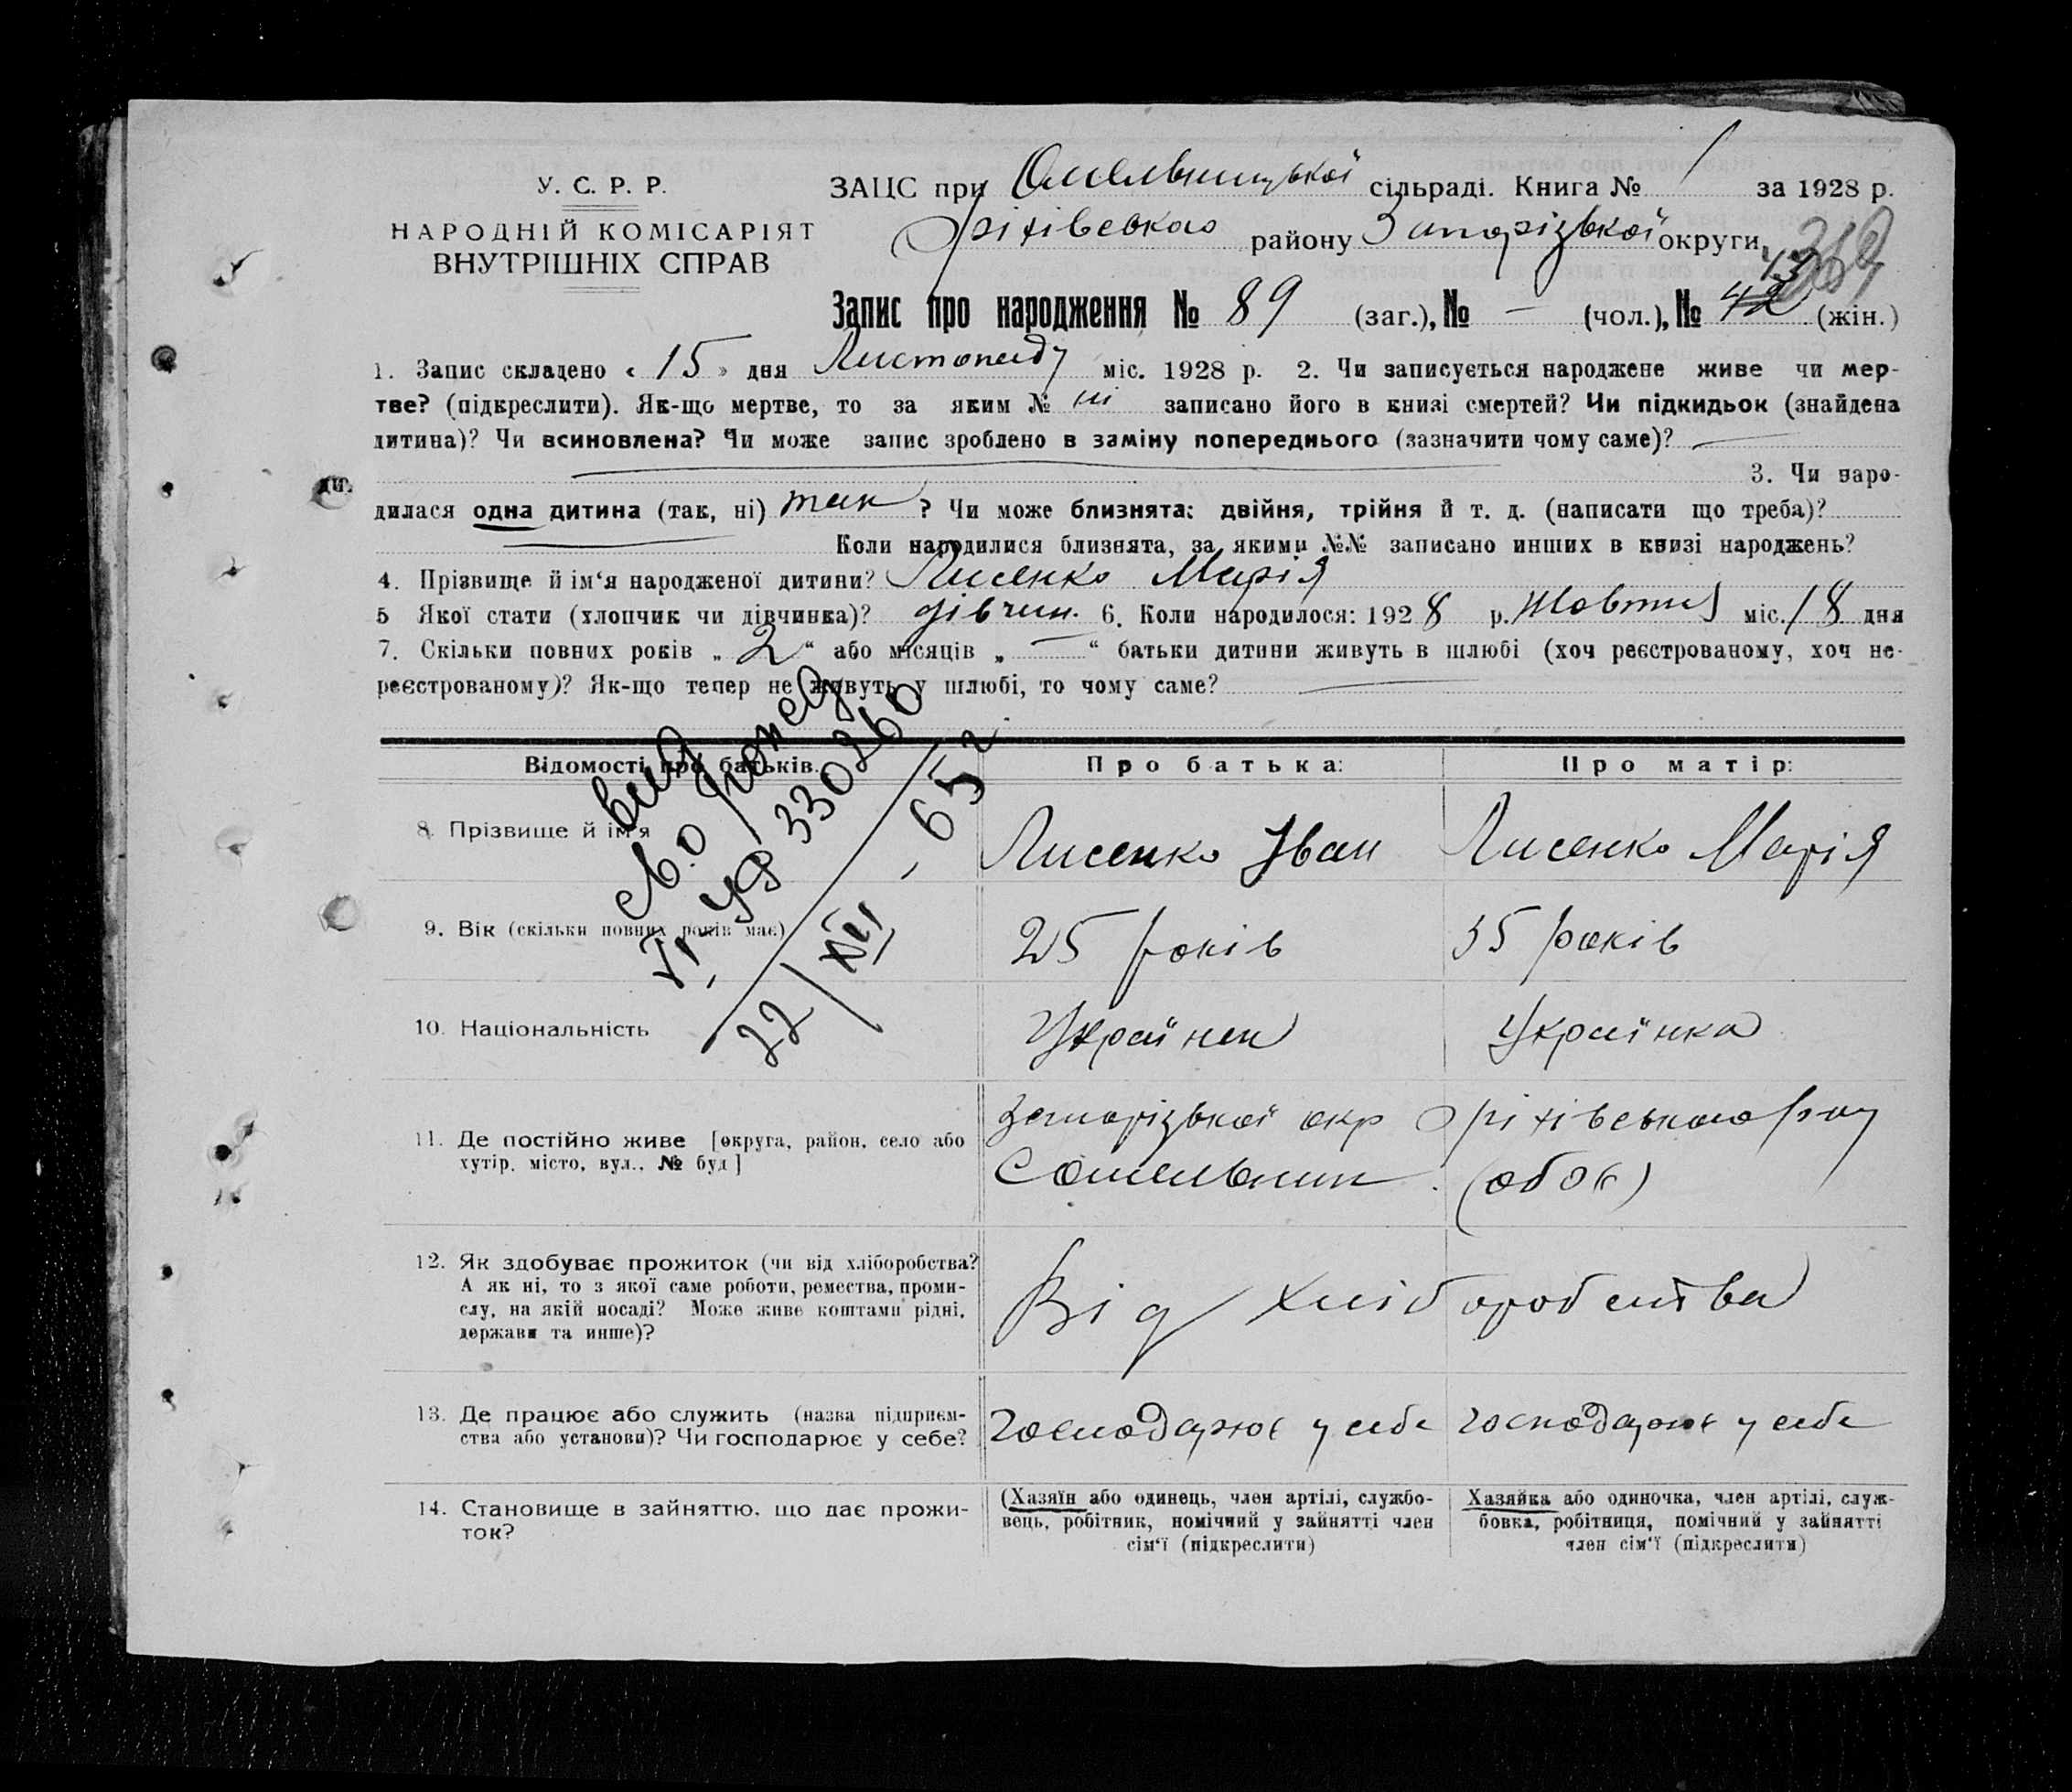 У. С. Р. Р.
НАРОДНІЙ КОМІСАРІЯТ
ВНУТРІШНІХ СПРАВ
ЗАЦС при Омельницької сільраді. Книга № 1 за 1928 р.
Оріхівського району Запорізької округи
Запис про народження № 89 (заг.), № — (чол.), № 42 43 (жін.)
1. Запис складено « 15 » дня Листопаду міс. 1928 р. 2. Чи записується народжене живе чи мер-
тве? (підкреслити). Як-що мертве, то за яким № записано його в книзі смертей? Чи підкидьок (знайдена
дитина)? Чи всиновлена? Чи може запис зроблено в заміну попереднього (зазначити чому саме)?
3. Чи наро-
ди.
дилася одна дитина (так, ні) так ? Чи може близнята: двійня, трійня й т. д. (написати що треба)?
Коли народилися близнята, за якими №№ записано инших в книзі народжень?
4. Прізвище й ім‘я народженої дитини? Лисенко Марія
5 Якої стати (хлопчик чи дівчинка)? дівчин. 6. Коли народилося: 1928 р. Жовтня міс. 18 дня
7. Скільки повних років „ 2 “ або місяців „ — “ батьки дитини живуть в шлюбі (хоч реєстрованому, хоч не-
реєстрованому)? Як-що тепер не живуть у шлюбі, то чому саме?
Відомості про батьків. Про батька: Про матір:
8. Прізвище й ім‘я Лисенко Іван Лисенко Марія
9. Вік (скільки повних років має) 25 років 35 років
10. Національність Українец Українка
11. Де постійно живе [округа, район, село або
хутір, місто, вул., № буд]
Запорізької окр Оріхівського р-ну
С Омельник (обоє)
12. Як здобуває прожиток (чи від хліборобства?
А як ні, то з якої саме роботи, ремества, проми-
слу, на якій посаді? Може живе коштами рідні,
держави та инше)?
Від хліборобства
13. Де працює або служить (назва підприєм-
ства або установи)? Чи господарює у себе?
господарює у себе господарює у себе
14. Становище в зайняттю, що дає прожи-
ток?
(Хазяїн або одинець, член артілі, службо-
вець, робітник, помічний у зайнятті член
сім‘ї (підкреслити)
Хазяйка або одиночка, член артілі, служ-
бовка, робітниця, помічний у зайнятті
член сім‘ї (підкреслити)
VI УЯ 330260
22/XII 65 г